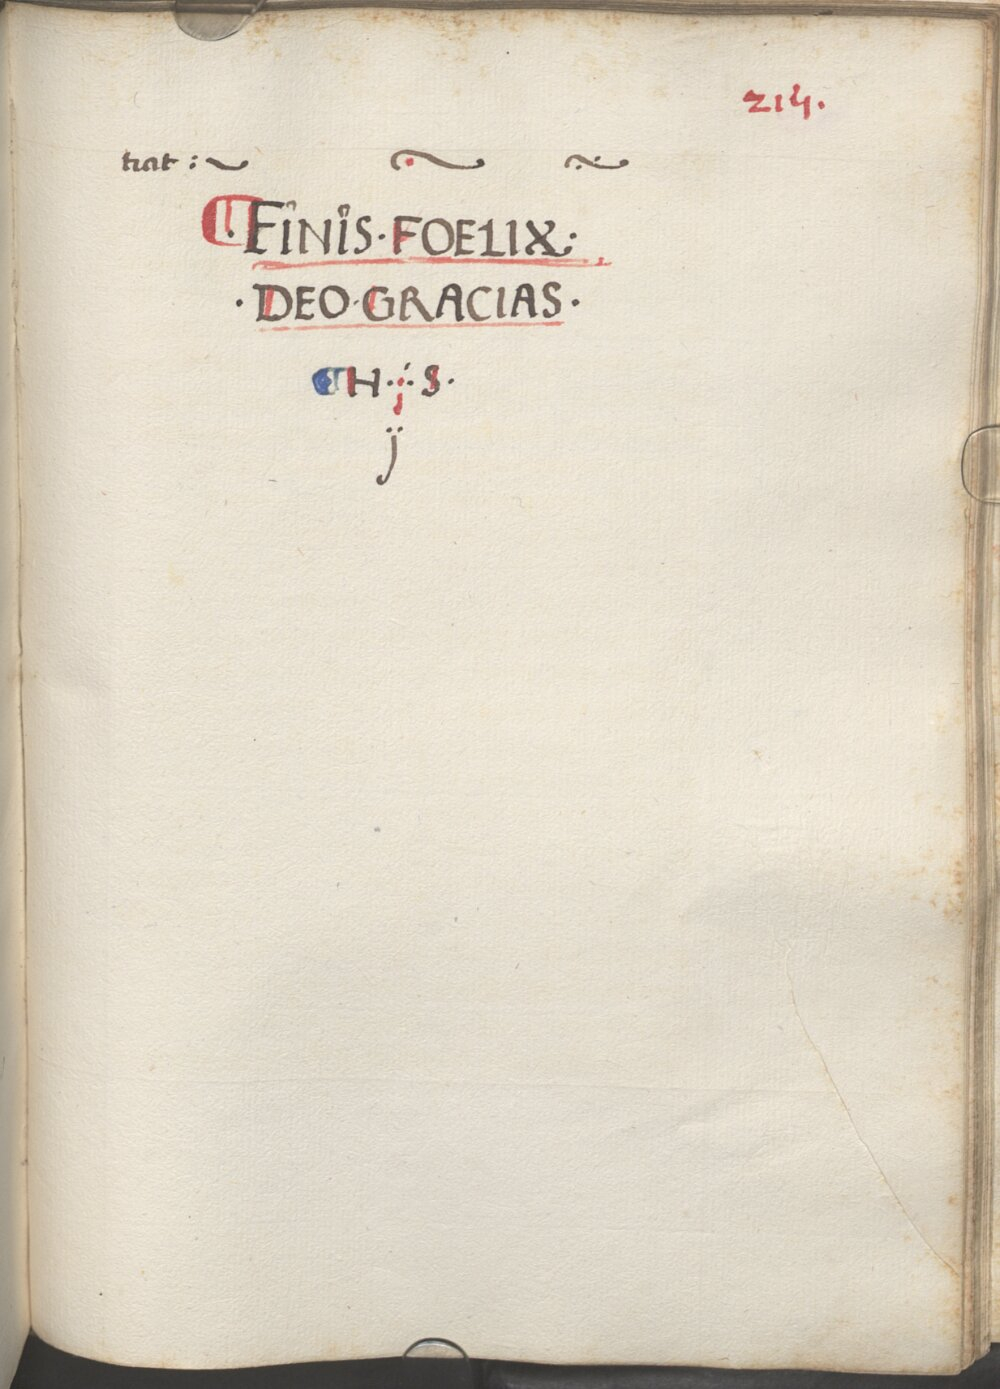 214.
trat :~
¶ FINIS · FOELIX :
· DEO · GRACIAS ·
¶ H · j · S ·
ij